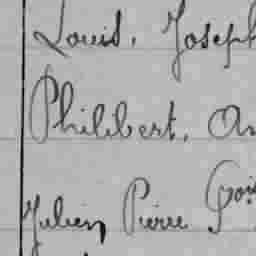 Louis, Joseph
Philibert, An
Julien Pierre